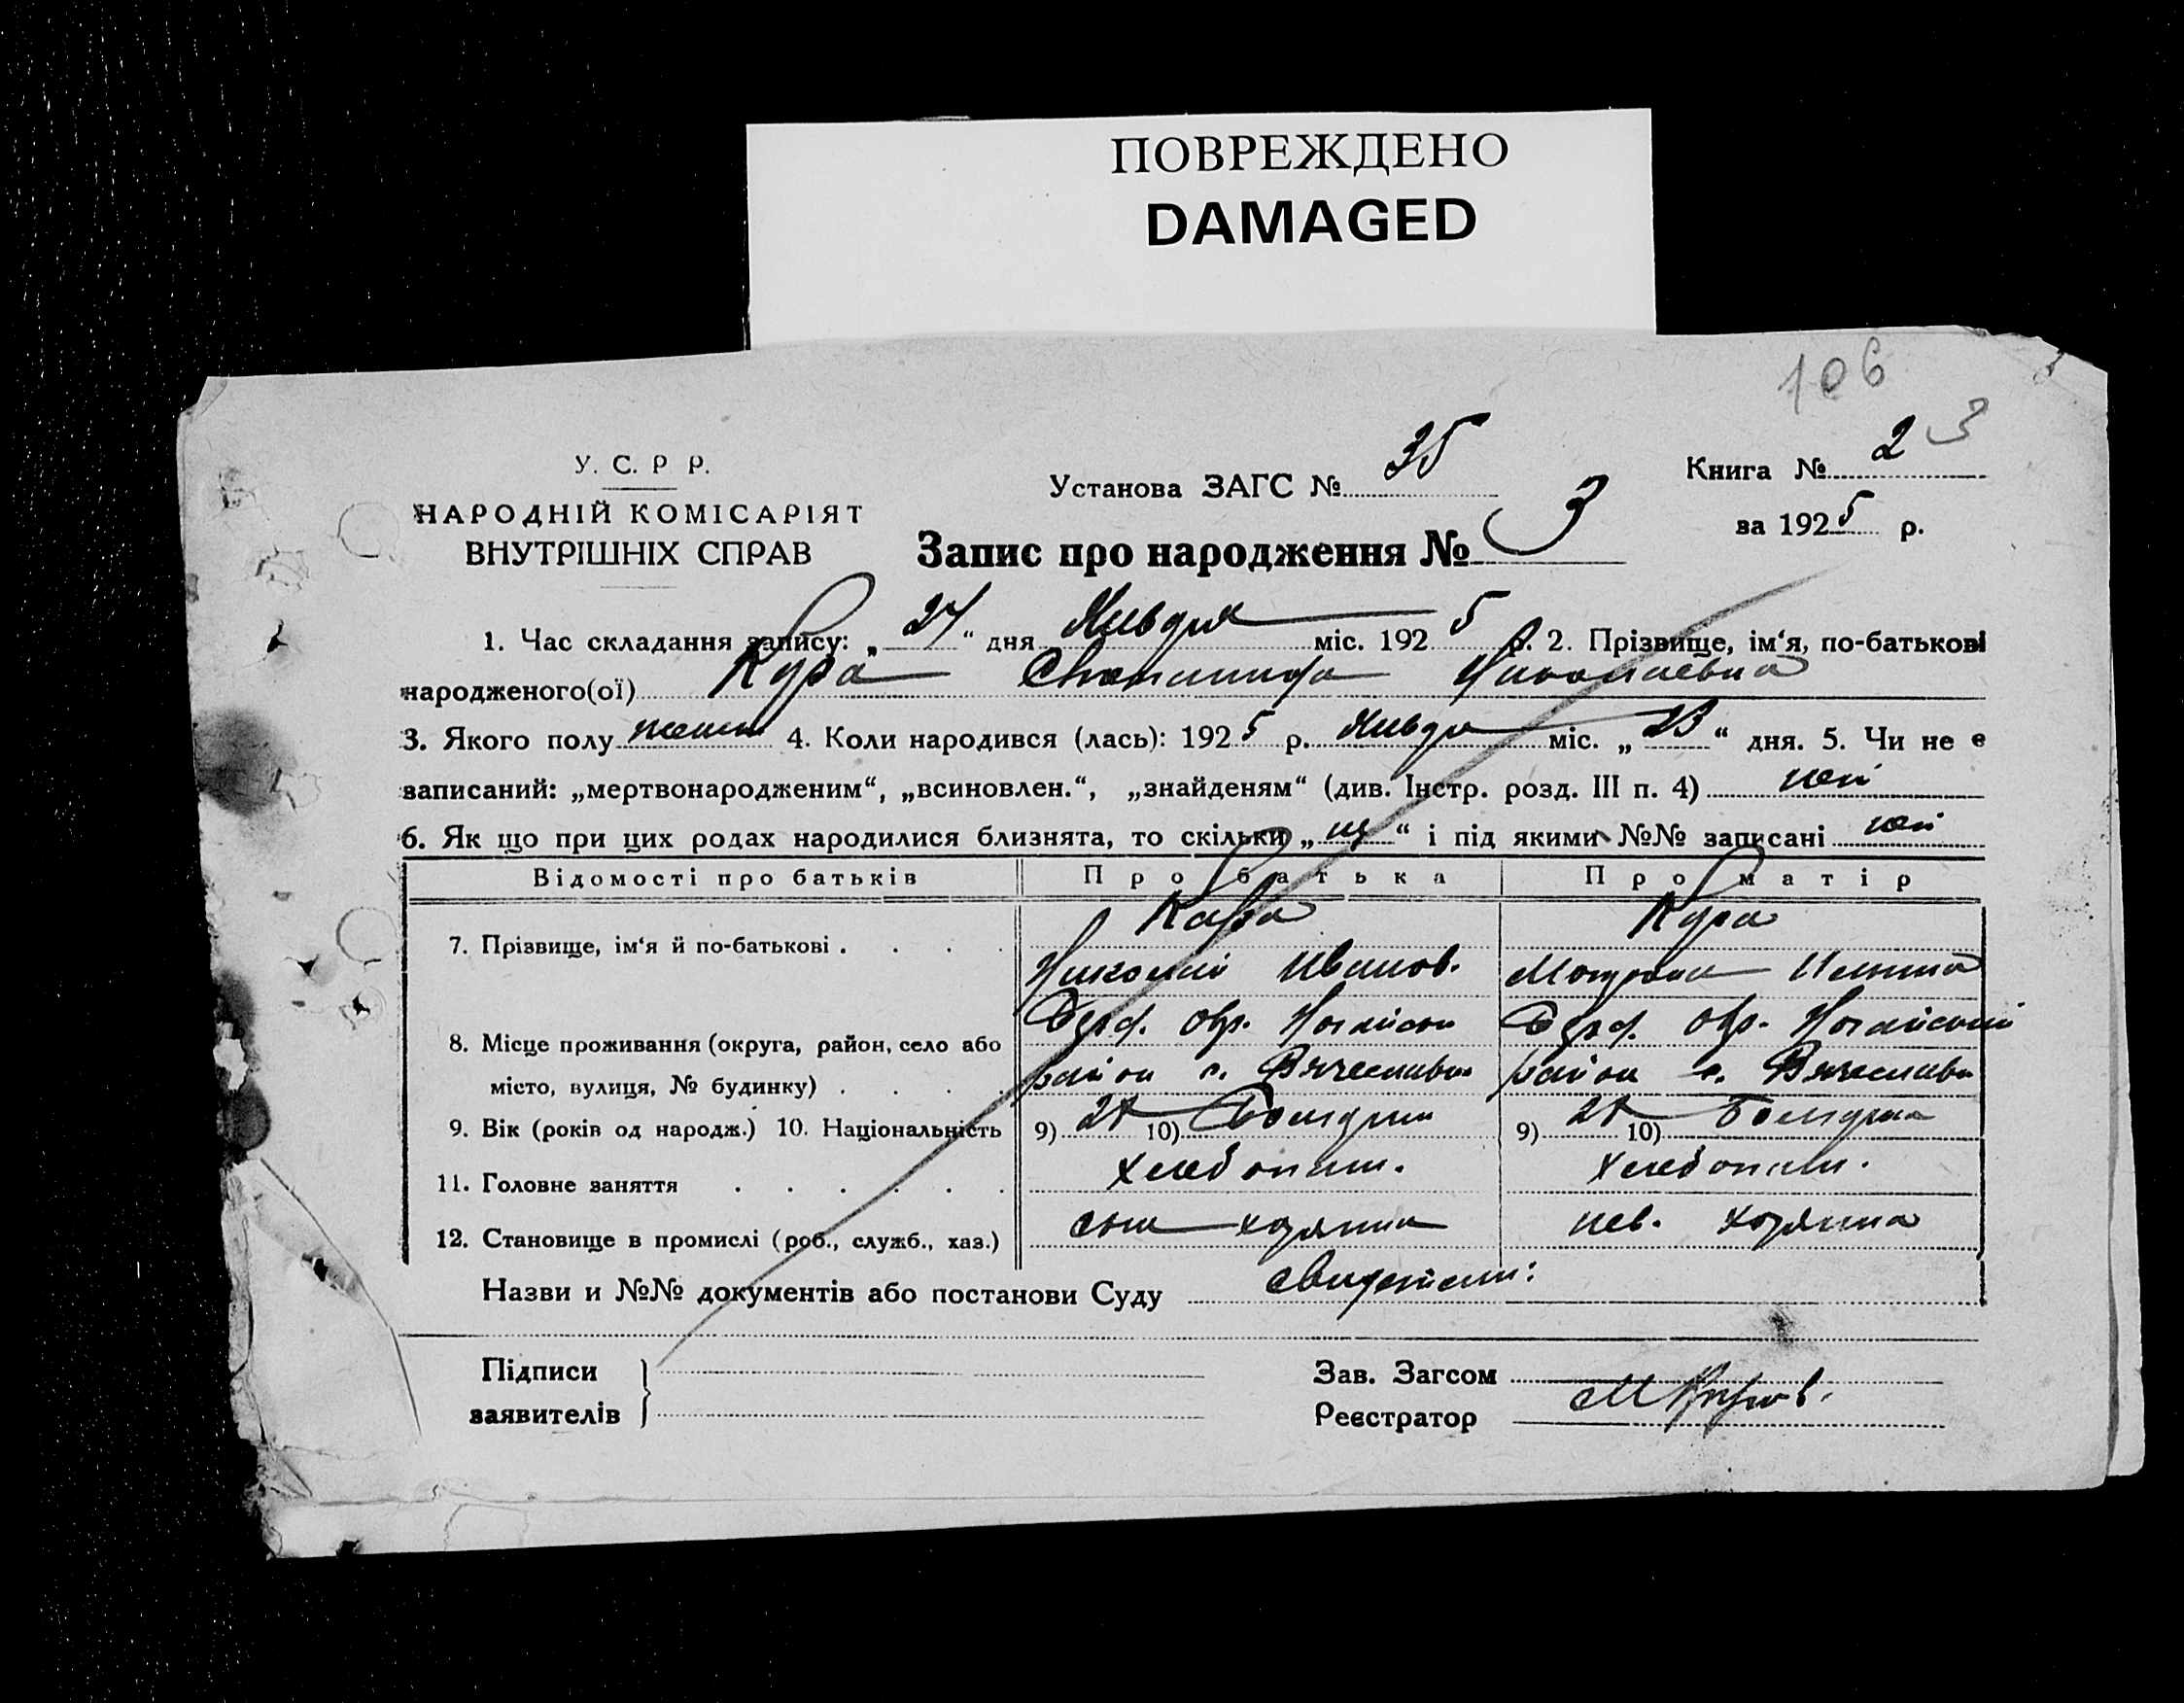 ПОВРЕЖДЕНО
DAMAGED
106
У. С. Р Р.
НАРОДНІЙ КОМІСАРІЯТ
ВНУТРІШНІХ СПРАВ
Установа ЗАГС № 35
Книга № 2 3
за 1925 р.
Запис про народження № 3
1. Час складання запису: „24“ дня Января міс. 1925 р. 2. Прізвище, ім‘я, по-батькові
народженого(ої) Кара Степанида Николаевна
3. Якого полу женск 4. Коли народився (лась): 1925 р. Январ міс. „23“ дня. 5. Чи не е
записаний: „мертвонародженим“, „всиновлен.“, „знайденям“ (див. Інстр. розд. III п. 4) ней
6. Як що при цих родах народилися близнята, то скільки „ “ і під якими №№ записані ней
Відомості про батьків Про батька Про матір
7. Прізвище, ім‘я й по-батькові . Кара Кара
Николай Иванов. Мотрона
8. Місце проживання (округа, район, село або Берд. окр. Ногайски Берд. окр. Ногайский
місто, вулиця, № будинку) . район с. Вячеславка район с. Вячеславка
9. Вік (років од народж.) 10. Національність 9) 10) Болгарин 9) 10) Болгарка
11. Головне заняття хлебопаш. хлебопаш.
12. Становище в промислі (роб., служб., хаз.) сын хозяина нев. хозяина
Назви и №№ документів або постанови Суду свидетели:
Підписи
заявителів
Зав. Загсом
Реєстратор